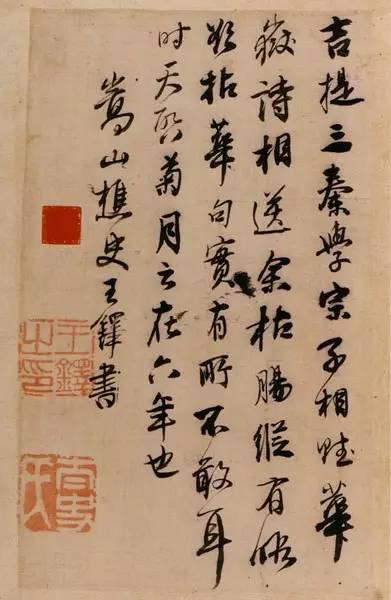 吉提三秦學宗子相賦華
嶽詩相送余枯腸縱有
拈華句實有所不敢耳
时天啓菊月云在六年也
嵩山樵史王鐸書
王鐸之印